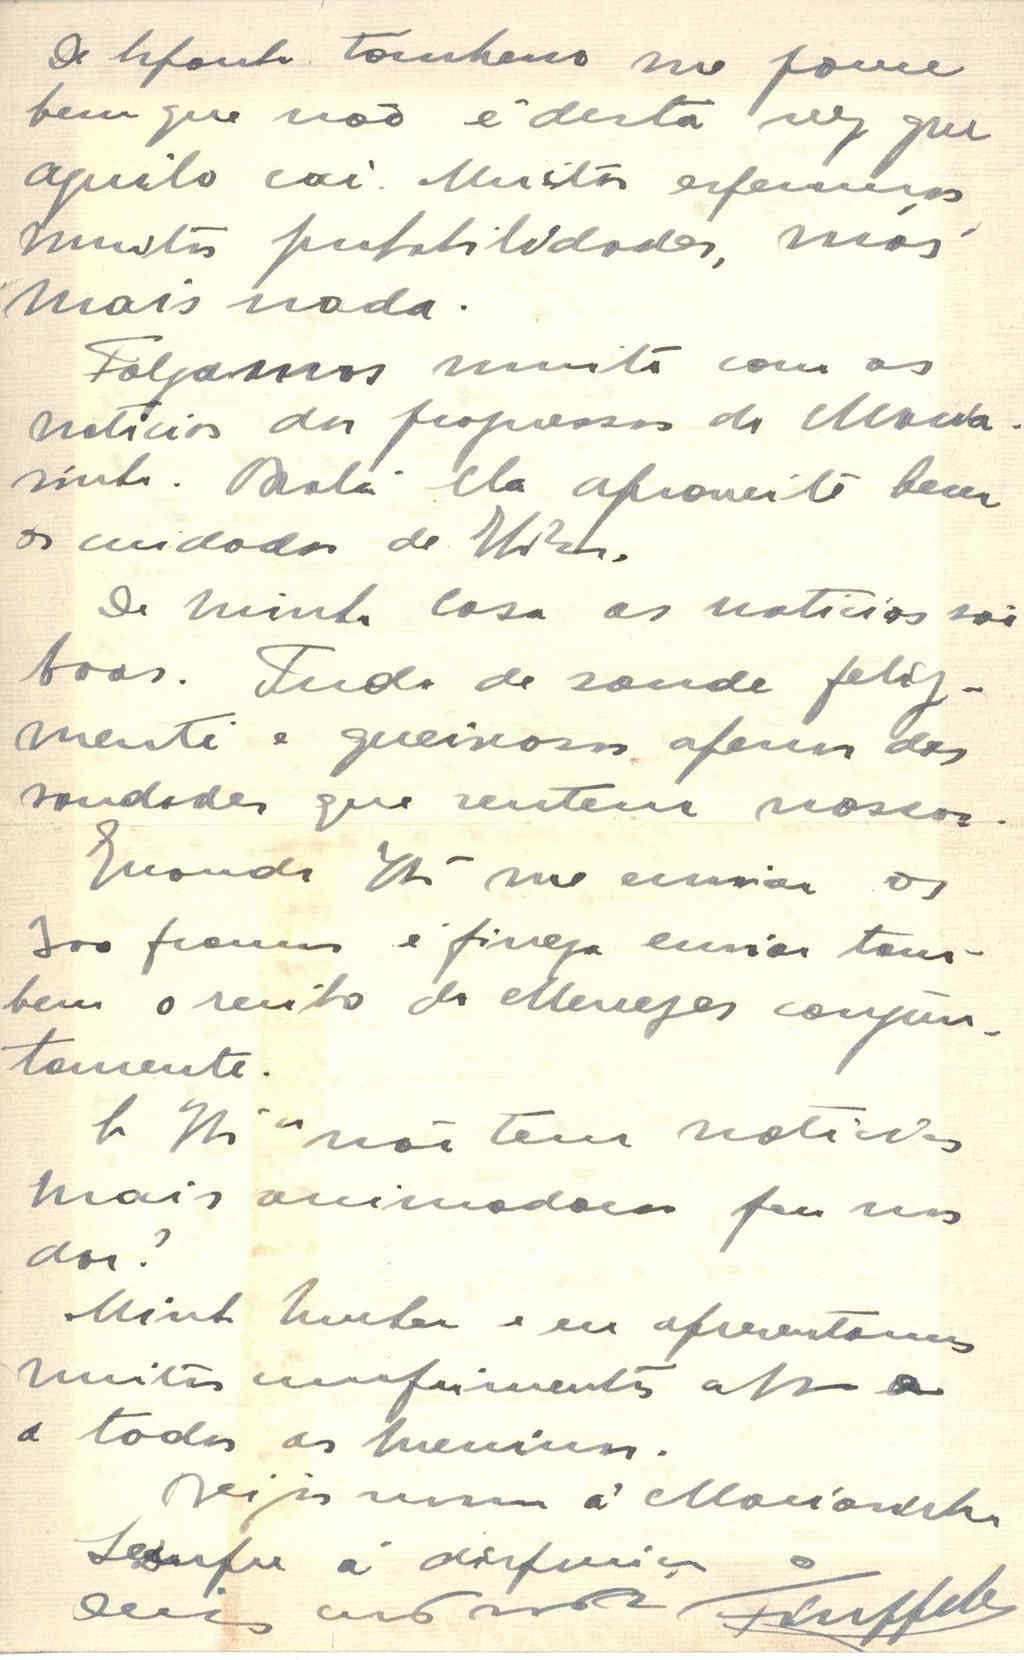 De Espanha tambem me parece
bem que não é desta vez que
aquilo cai. Muitas esperanças
muitas probabilidades, mas
mais nada.
Folgamos muito com as
noticias dos progressos da Maria-
sinha. Deus ela aproveite bem
os cuidados de
De minha casa as noticias são
boas. Tudo de saude feliz-
mente e queixosos apenas das
saudades que sentem nossas.
Quando me enviar os
300 francos é fineza enviar tam-
bem o recibo do Menezes conjun-
tamente.
não tem noticias
mais animadoras para nos
dar?
Minha mulher e eu apresentamos
muitos cumprimentos a
a todas as meninas.
Beijos nossos á Mariasinha
Sempre á disposição o